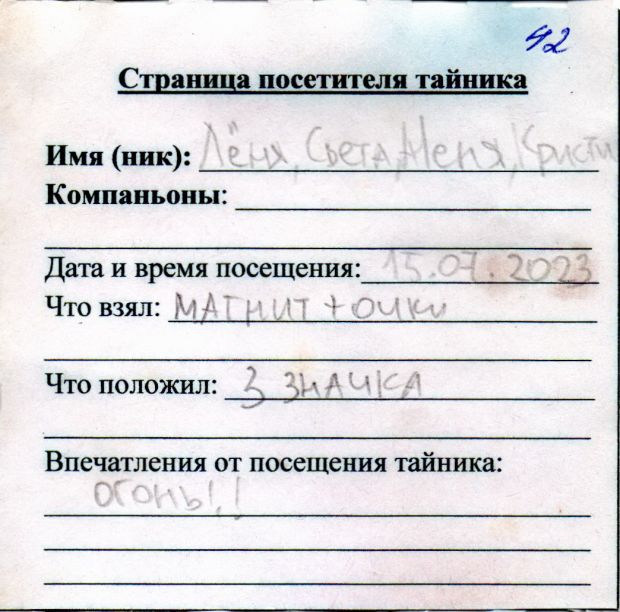 42
Страница посетителя тайника
Имя (ник): Лёня, Света, Женя, Кристи
Компаньоны:
Дата и время посещения: 15.07.2023
Что взял: МАГНИТ + ОЧКИ
Что положил: 3 ЗНАЧКА
Впечатления от посещения тайника:
огонь!!